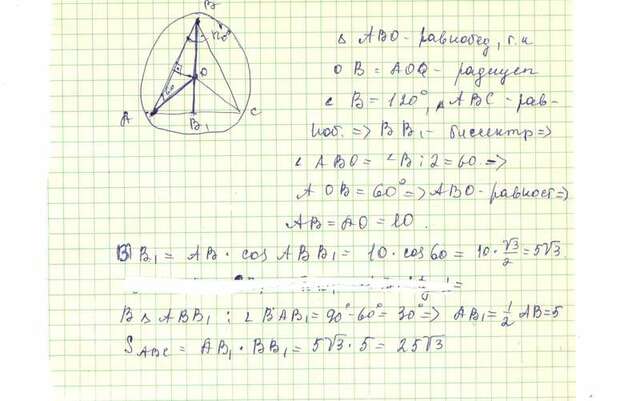 B
120°
O
60
A
B₁
C
△ ABO - равнобед, т.к
OB = AO - радиусы
∠ B = 120°, △ ABC - рав-
ноб. => BB₁ - биссектр =>
∠ ABO = ∠B : 2 = 60 =>
AOB = 60° => ABO - равност =>
AB = AO = 10.
BB₁ = AB · cos ABB₁ = 10 · cos 60 = 10 · √3/2 = 5√3.
В △ ABB₁ : ∠ BAB₁ = 90° - 60° = 30° => AB₁ = 1/2 AB = 5
S ABC = AB₁ · BB₁ = 5√3 · 5 = 25√3